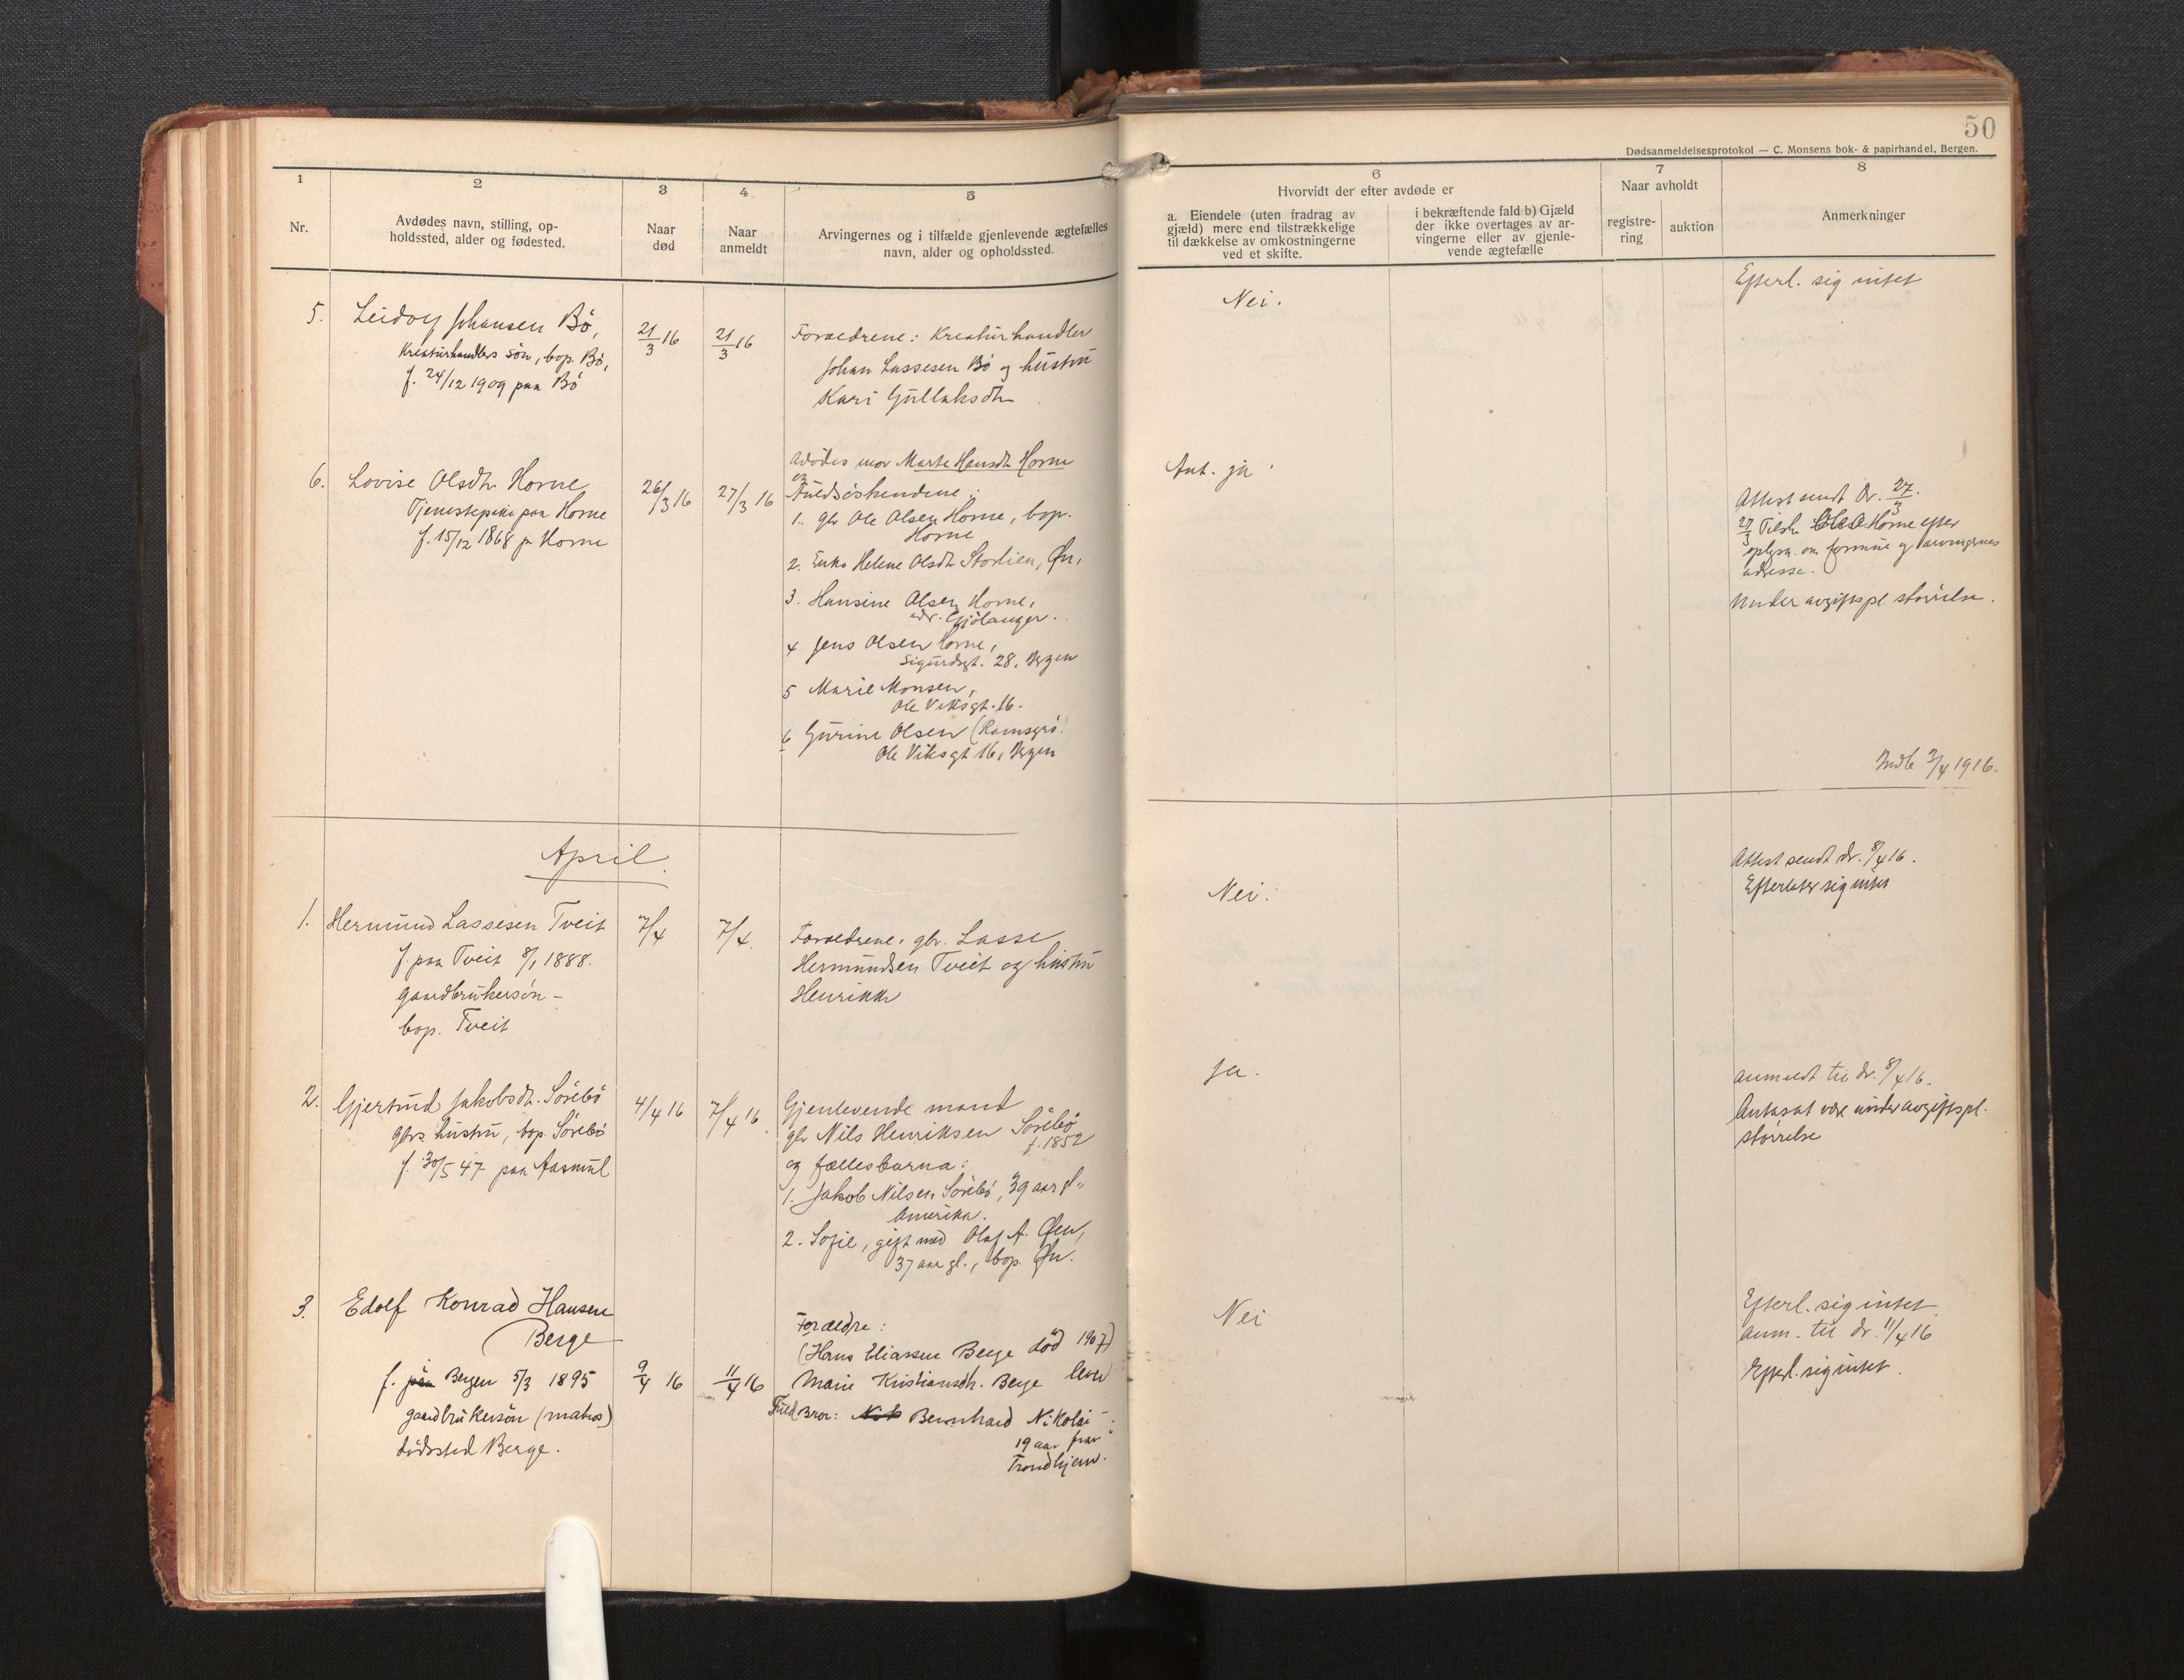 50
Dødsanmeldelsesprotokol — C. Monsens bok- & papirhandel, Bergen.
1
Nr.
2
Avdødes navn, stilling, op-
holdssted, alder og fødested.
3
Naar
død
4
Naar
anmeldt
5
Arvingernes og i tilfælde gjenlevende ægtefælles
navn, alder og opholdssted.
6
Hvorvidt der efter avdøde er
a. Eiendele (uten fradrag av
gjæld) mere end tilstrækkelige
til dækkelse av omkostningerne
ved et skifte.
i bekræftende fald b) Gjæld
der ikke overtages av ar-
vingerne eller av gjenle-
vende ægtefælle
7
Naar avholdt
registre-
ring
auktion
8
Anmerkninger
5.
Leidolf Johansen Bö,
Kreaturhandlers sön, bop. Bö,
f. 24/12 1909 paa Bö
21/3 16
21/3 16
Forældrene: Kreaturhandler
Johan Lassesen Bö og hustru
Kari Gullaksdtr
Nei.
Efterl. sig intet
6.
Lovise Olsdtr Horne
Tjenestepike paa Horne
f. 15/12 1868 p Horne
26/3 16
27/3 16
Avdödes mor Marte Hansdtr Horne
og
Fuldsöskendene:
1. gbr Ole Olsen Horne, bop.
Horne
2. Enke Helene Olsdtr Storlien, Øn,
3. Hansine Olsen Horne,
adr. Gjölanger.
4 Jens Olsen Horne,
Sigurdsgt. 28, Bergen
5 Marie Monsen,
Ole Viksgt. 16.
6 Gurine Olsen (Ramsgrö)
Ole Viksgt 16, Bergen
Ant. ja.
Attest sendt dr. 27/3.
27/3 Tilskr. Ole O. Horne efter
oplysn. om formue og arvingernes
adresse.
Under avgiftspl störrelse.
Indb 3/4 1916.
April.
1.
Hermund Lassesen Tveit
f. paa Tveit 8/1 1888.
gaardbrukersön -
bop. Tveit
7/4
7/4.
Forældrene: gbr. Lasse
Hermundsen Tveit og hustru
Henrikke
Nei.
Attest sendt dr. 8/4 16.
Efterlater sig intet
2.
Gjertrud Jakobsdtr. Sörebö
gbrs hustru, bop. Sörebö
f. 30/5 47 paa Aasmul
4/4 16
7/4 16
Gjenlevende mand
gbr Nils Henriksen Sörebö
f. 1852
og fællesbarna:
1. Jakob Nilsen Sörebö, 39 aar gl.,
Amerika.
2. Sofie, gift med Olaf A. Øen,
37 aar gl., bop. Øn.
Ja.
anmeldt til dr. 8/4 16.
Antasat være under avgiftspl.
störrelse
3.
Edolf Konrad Hansen
Berge
f. paa Bergen 5/3 1895
gaardbrukersön (matros)
dödssted Berge.
9/4 16
11/4 16
Forældre:
(Hans Eliassen Berge död 1907)
Marie Kristiansdtr. Berge lever
Fuld Bror: Nik Bernhard Nikolai -
19 aar fra
Trondhjem.
Nei
Efterl. sig intet
anm. til dr. 11/4 16
Efterl. sig intet.